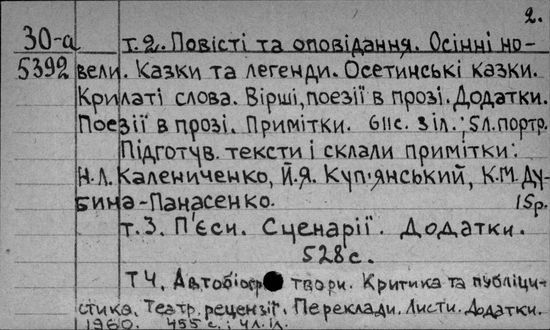 2.
30-а т.2. Повісті та оповідання. Осінні но-
5392 вели. Казки та легенди. Осетинські казки.
Крилаті слова. Вірші, поезії в прозі. Додатки.
Поезії в прозі. Примітки. 611с. з іл.; 5л. портр.
Підготув. тексти і склали примітки:
Н.Л. Калениченко, Й.Я. Куп'янський, К.М. Ду-
бина-Панасенко. 15р.
т.3. П'єси. Сценарії. Додатки.
528с.
Т4. Автобіогр твори. Критика та публіци-
стика. Театр. рецензії. Переклади. Листи. Додатки.
1960. 455 с.; 4л. іл.